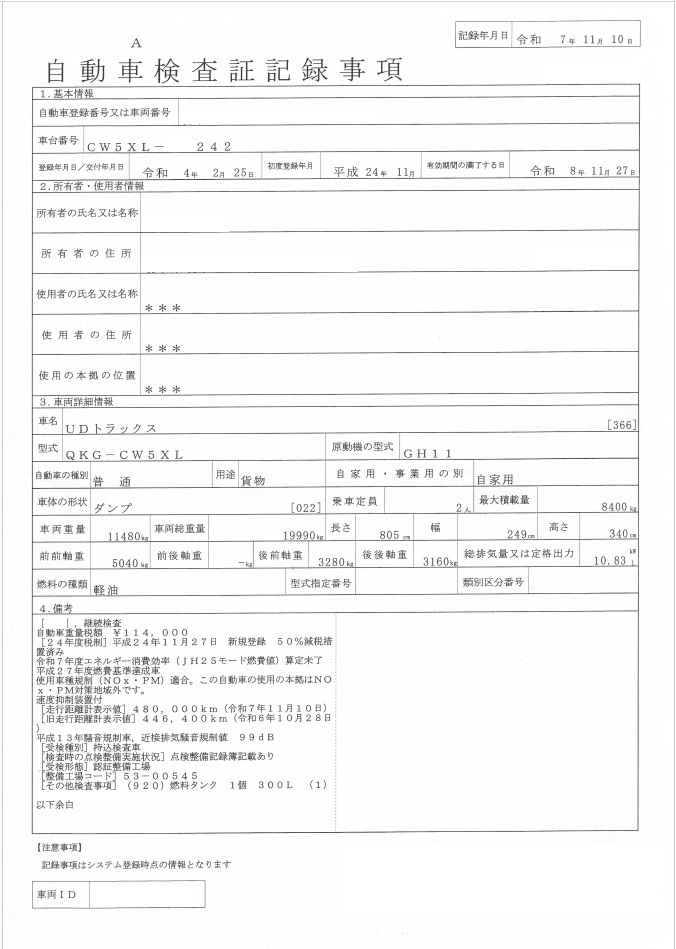 A
記録年月日 令和 7年 11月 10日
自動車検査証記録事項
1.基本情報
自動車登録番号又は車両番号
車台番号 CW5XL－ 242
登録年月日/交付年月日 令和 4年 2月 25日 初度登録年月 平成 24年 11月 有効期間の満了する日 令和 8年 11月 27日
2.所有者・使用者情報
所有者の氏名又は名称
所有者の住所
使用者の氏名又は名称 ＊＊＊
使用者の住所 ＊＊＊
使用の本拠の位置 ＊＊＊
3.車両詳細情報
車名 UDトラックス [366]
型式 QKG－CW5XL 原動機の型式 GH11
自動車の種別 普通 用途 貨物 自家用・事業用の別 自家用
車体の形状 ダンプ [022] 乗車定員 2人 最大積載量 8400kg
車両重量 11480kg 車両総重量 19990kg 長さ 805cm 幅 249cm 高さ 340cm
前前軸重 5040kg 前後軸重 -kg 後前軸重 3280kg 後後軸重 3160kg 総排気量又は定格出力 10.83 kW L
燃料の種類 軽油 型式指定番号 類別区分番号
4.備考
[ ],継続検査
自動車重量税額 ￥114,000
[24年度税制]平成24年11月27日 新規登録 50%減税措
置済み
令和7年度エネルギー消費効率(JH25モード燃費値)算定未了
平成27年度燃費基準達成車
使用車種規制(NOx・PM)適合。この自動車の使用の本拠はNO
x・PM対策地域外です。
速度抑制装置付
[走行距離計表示値]480,000km(令和7年11月10日)
[旧走行距離計表示値]446,400km(令和6年10月28日
)
平成13年騒音規制車,近接排気騒音規制値 99dB
[受検種別]持込検査車
[検査時の点検整備実施状況]点検整備記録簿記載あり
[受検形態]認証整備工場
[整備工場コード]53－00545
[その他検査事項](920)燃料タンク 1個 300L (1)
以下余白
【注意事項】
記録事項はシステム登録時点の情報となります
車両ID